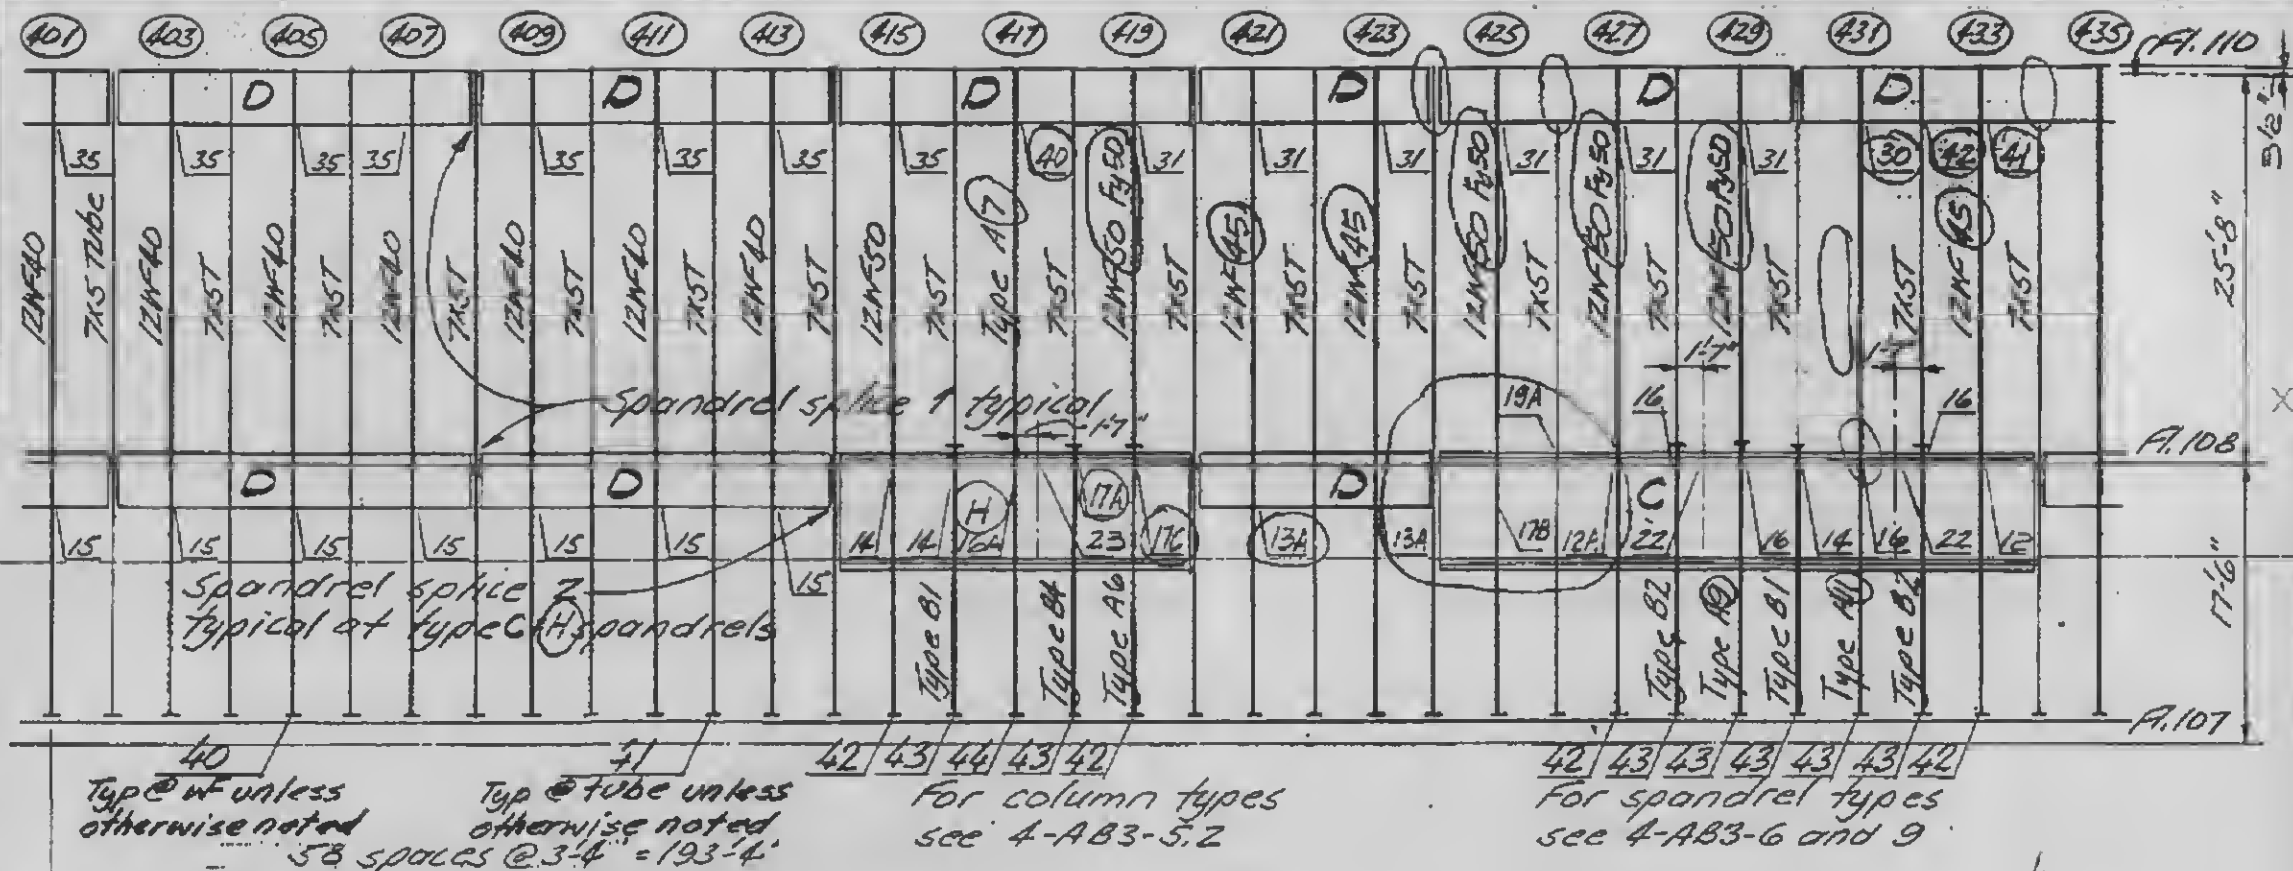 401 403 405 407 409 411 413 415 417 419 421 423 425 427 429 431 433 435 Fl. 110
D D D D D D
3½"
35 35 35 35 35 35 35 35 40 31 31 31 31 31 31 30 42 41
12WF40 7x5 Tube 12WF40 7x5T 12WF40 7x5T 12WF40 7x5T 12WF40 7x5T 12WF40 7x5T 12WF40 7x5T 12WF50 7x5T Type A7 7x5T 12WF50 Fy50 7x5T 12WF45 7x5T 12WF45 7x5T 12WF50 Fy50 7x5T 12WF50 Fy50 7x5T 12WF50 Fy50 7x5T 7x5T 12WF45 7x5T
25'-8"
1'-7" 1'-7"
Spandrel splice 1 typical 1'-7" 19A 16 16
Fl. 108
D D H 17A D C
15 15 15 15 15 15 15 14 14 16A 23 17C 13A 13A 17B 12A 22 16 14 16 22 12
Spandrel splice 2
typical at type C+H spandrels
Type B1 Type B4 Type A6 Type B2 Type A9 Type B1 Type A11 Type B2
17'-6"
Fl. 107
40 41 42 43 44 43 42 42 43 43 43 43 43 42
Typ @ WF unless
otherwise noted
Typ @ tube unless
otherwise noted
For column types
see 4-AB3-5.2
For spandrel types
see 4-AB3-6 and 9
58 spaces @ 3'-4" = 193'-4"